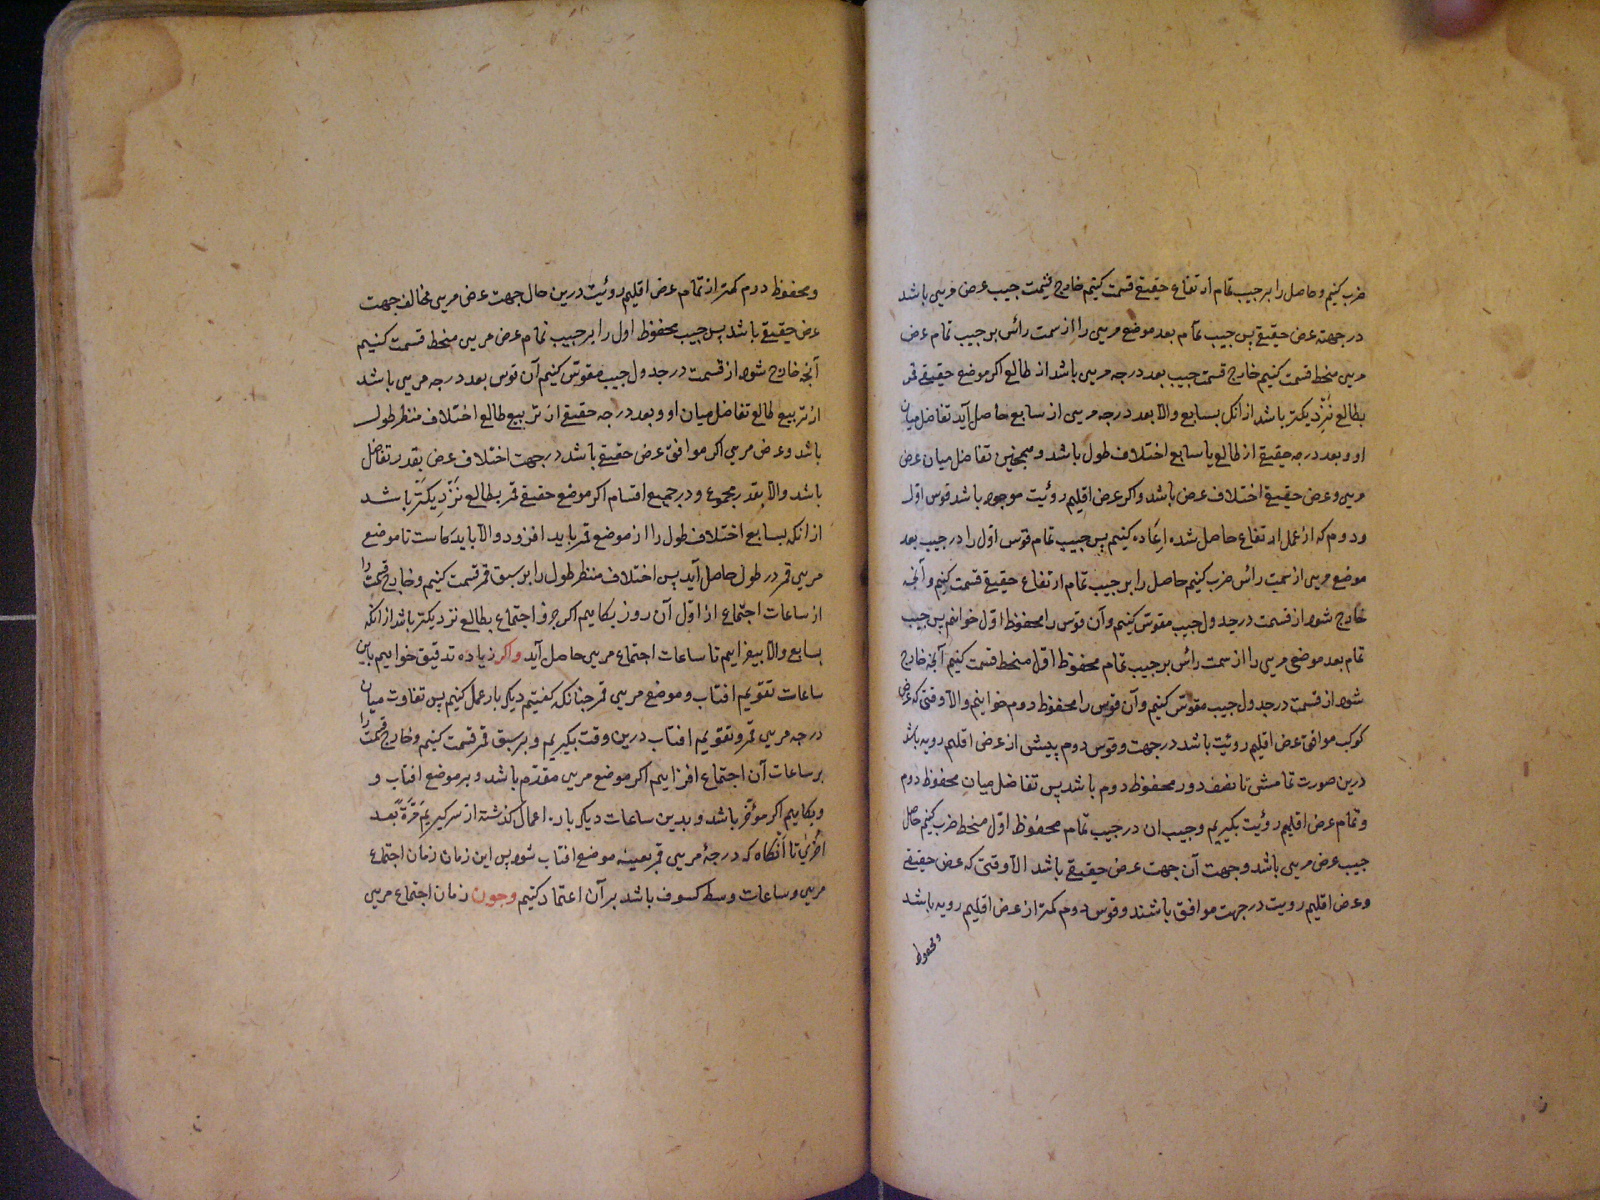 ضرب کنیم و حاصل را بر جیب تمام ارتفاع حقیقی قسمت کنیم خارج قسمت جیب عرض مریی باشد
در جهته عرض حقیقی پس جیب تمام بعد موضع مریی را از سمت رأس بر جیب تمام عرض
مریی منحط قسمت کنیم خارج قسمت جیب بعد درجه مریی باشد از طالع اکر موضع حقیقی قمر
بطالع نزدیکتر باشد از انک بسابع والا بعد درجه مریی از سابع حاصل آید تفاضل میان
او و بعد درجه حقیقی از طالع یا سابع اختلاف طول باشد و همچنین تفاضل میان عرض
مریی و عرض حقیقی اختلاف عرض باشد و اکر عرض اقلیم روئیت موجود باشد قوس اول
و دوم که از عمل ارتفاع حاصل شده اعاده کنیم پس جیب تمام قوس اول را در جیب بعد
موضع مریی از سمت رأس ضرب کنیم حاصل را بر جیب تمام ارتفاع حقیقی قسمت کنیم و آنچه
خارج شود از قسمت در جدول جیب مقوس کنیم و آن قوس را محفوظ اول خوانیم پس جیب
تمام بعد موضع مریی را از سمت رأس بر جیب تمام محفوظ اول منحط قسمت کنیم آنچه خارج
شود از قسمت در جدول جیب مقوس کنیم و آن قوس را محفوظ دوم خوانیم والا وقتی که عرض
کوکب موافق عرض اقلیم روئیت باشد در جهت و قوس دوم بیش از عرض اقلیم رویه باشد
درین صورت تمامش تا نصف دور محفوظ دوم باشد پس تفاضل میان محفوظ دوم
و تمام عرض اقلیم روئیت بکیریم و جیب ان در جیب تمام محفوظ اول منحط ضرب کنیم حاصل
جیب عرض مریی باشد و جهت آن جهت عرض حقیقی باشد الا وقتی که عرض حقیقی
و عرض اقلیم رویت در جهت موافق باشند و قوس دوم کمتر از عرض اقلیم رویه باشد
و محفوظ
و محفوظ دوم کمتر از تمام عرض اقلیم روئیت درین حال جهت عرض مریی مخالف جهت
عرض حقیقی باشد پس جیب محفوظ اول را بر جیب تمام عرض مریی منحط قسمت کنیم
آنچه خارج شود از قسمت در جدول جیب مقوس کنیم آن قوس بعد درجه مریی باشد
از تربیع طالع تفاضل میان او و بعد درجه حقیقی از تربیع طالع اختلاف منظر طول
باشد و عرض مریی اکر موافق عرض حقیقی باشد در جهت اختلاف عرض بقدر تفاضل
باشد والا بقدر مجموع و در جمیع اقسام اکر موضع حقیقی قمر بطالع نزدیکتر باشد
از انکه بسابع اختلاف طول را از موضع قمر باید افزود والا باید کاست تا موضع
مریی قمر در طول حاصل آید پس اختلاف منظر طول را بر سبق قمر قسمت کنیم و خارج قسمت را
از ساعات اجتماع از اول آن روز بکاهیم اکر جزو اجتماع بطالع نزدیکتر باشد از انکه
بسابع والا بیفزاییم تا ساعات اجتماع مریی حاصل آید واکر زیاده تدقیق خواهیم باین
ساعات تقویم افتاب و موضع مریی قمر چنانکه کفتیم دیکر بار عمل کنیم پس تفاوت میان
درجه مریی قمر و تقویم افتاب درین وقت بکیریم و بر سبق قمر قسمت کنیم و خارج قسمت را
بر ساعات آن اجتماع افزاییم اکر موضع مریی مقدم باشد و بر موضع افتاب و
و بکاهیم اکر مؤخر باشد و بدین ساعات دیکر بار اعمال کذشته از سر کیریم مَرّةً بَعد
اخری تا آنکاه که درجهٔ مریی قمر بعینه موضع افتاب شود پس این زمان زمان اجتماع
مریی و ساعات وسط کسوف باشد بر آن اعتماد کنیم وچون زمان اجتماع مریی